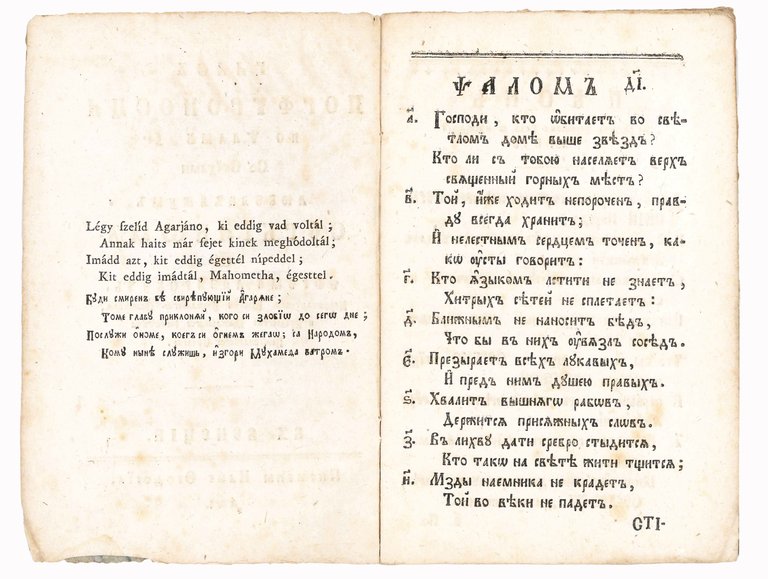 Légy ſzelíd Agarjáno, ki eddig vad voltál ;
Annak haits már fejet kinek meghódoltál;
Imádd azt, kit eddig égettél nípeddel ;
Kit eddig imádtál, Mahometha, égesttel.
Буди смиренъ бѣ свирѣпующїй А҆гарѧне ;
Томе главу приклонѧй, кого си злобїѡ до сегѡ дне ;
Послужи ѻ҆номе, коегъ си ѻ҆гнемъ жегаѡ; са Народомъ,
Кому нынѣ служишь, и҆згори Мухамеда ватромъ.
ѰАЛОМЪ д҃і.
а҃. Господи, кто ѡ҆битаетъ во свѣ-
тломъ домѣ выше звѣздъ?
Кто ли съ тобою населѧетъ верхъ
свѧщенный горныхъ мѣстъ?
в҃. Той, и҆́же ходитъ непорочен, прав-
ду всегда хранитъ;
И҆ нелестнымъ сердцемъ точен, ка-
кѡ ѹ҆сты говоритъ:
г҃. Кто ѧ҆зыкомъ лстити не знаетъ,
Хитрыхъ сѣтей не сплетаетъ:
д҃. Ближнымъ не наноситъ бѣдъ,
Что бы в нихъ ѹ҆вѧзлъ сосѣдъ.
є҃. Презыраетъ всѣхъ лукавыхъ,
И҆ предъ нимъ душею правыхъ.
ѕ҃. Хвалитъ вышнѧгѡ рабѡвъ,
Держитсѧ присѧжныхъ слѡвъ.
з҃. Въ лихву дати сребро стыдитсѧ,
Кто такѡ на свѣтѣ жити тщитсѧ;
и҃. Мзды наемника не крадетъ,
Той во вѣки не падетъ.
СТІ-